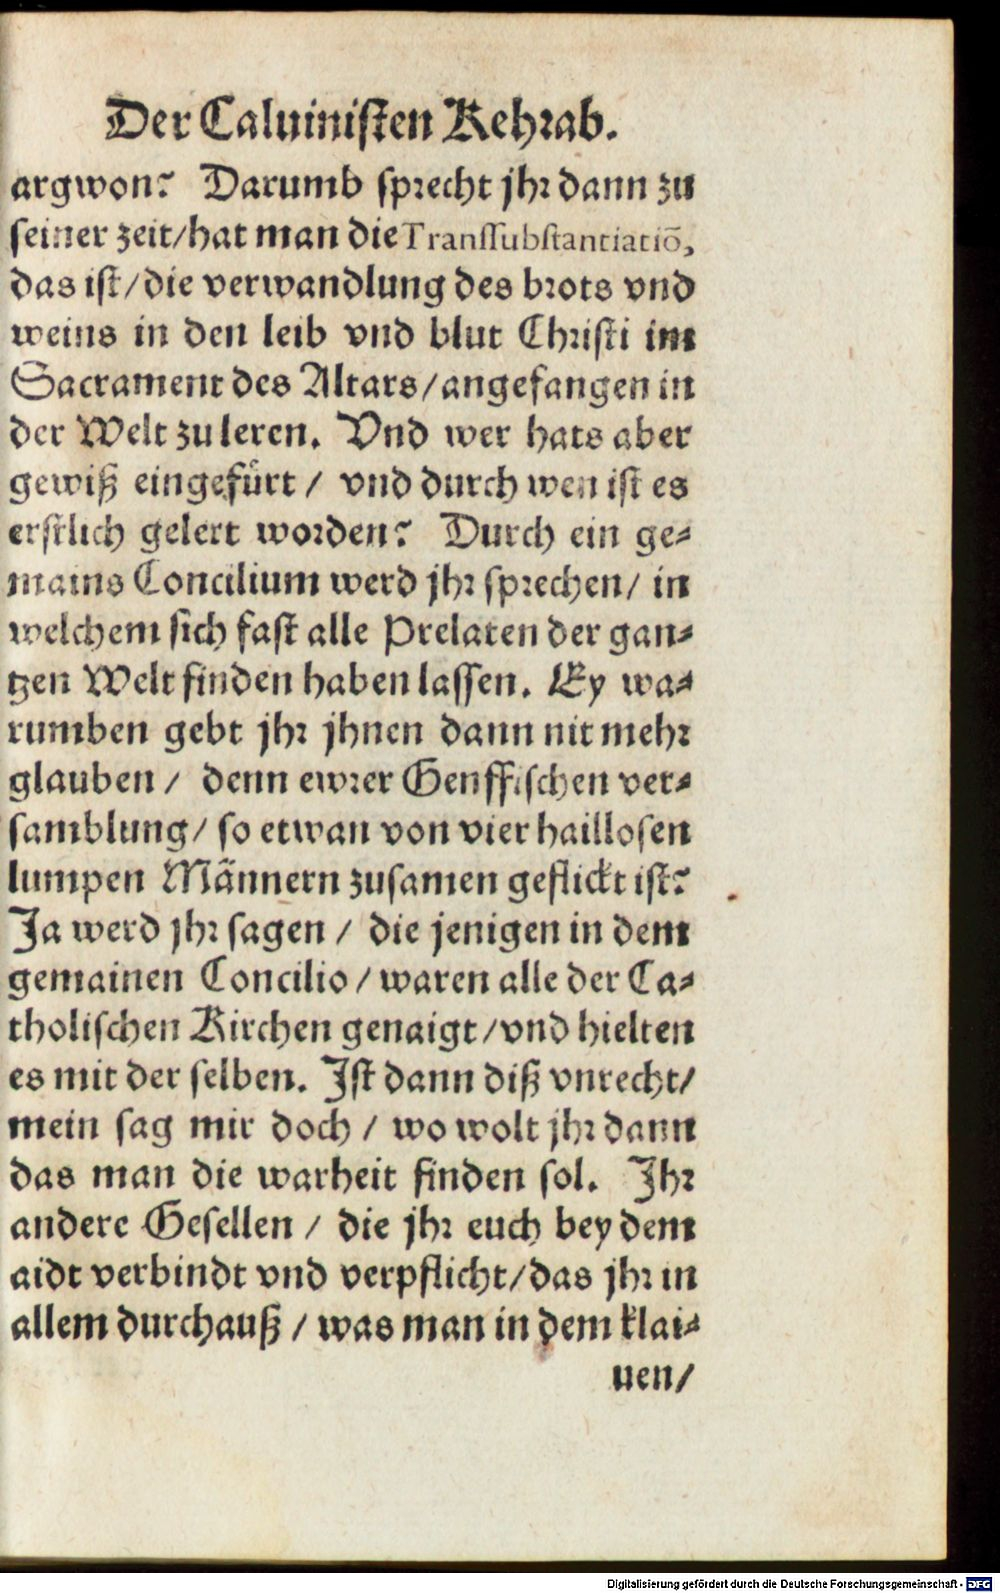 Der Caluinisten Kehrab.
argwon? Darumb sprecht jhr dann zu
seiner zeit/hat man die Transsubstantiatiō,
das ist/die verwandlung des brots vnd
weins in den leib vnd blut Christi im
Sacrament des Altars/angefangen in
der Welt zu leren. Vnd wer hats aber
gewiß eingefürt / vnd durch wen ist es
erstlich gelert worden? Durch ein ge-
mains Concilium werd jhr sprechen/ in
welchem sich fast alle Prelaten der gan-
tzen Welt finden haben lassen. Ey wa-
rumben gebt jhr jhnen dann nit mehr
glauben / denn ewrer Genffischen ver-
samblung/ so etwan von vier haillosen
lumpen Männern zusamen geflickt ist?
Ja werd jhr sagen / die jenigen in dem
gemainen Concilio / waren alle der Ca-
tholischen Kirchen genaigt/vnd hielten
es mit der selben. Ist dann diß vnrecht/
mein sag mir doch / wo wolt jhr dann
das man die warheit finden sol. Ihr
andere Gesellen / die jhr euch bey dem
aidt verbindt vnd verpflicht/das jhr in
allem durchauß / was man in dem klai-
nen/
Digitalisierung gefördert durch die Deutsche Forschungsgemeinschaft - DFG